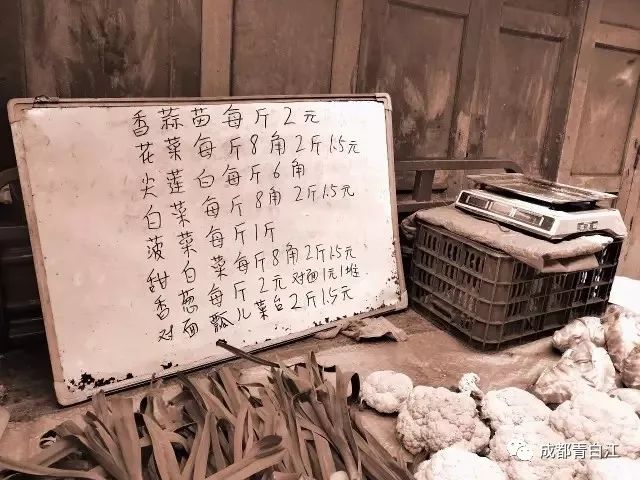 香蒜苗每斤2元
花菜每斤8角2斤1.5元
尖莲白每斤6角
白菜每斤8角2斤1.5元
菠菜每斤1斤
甜白菜每斤8角2斤1.5元
香葱每斤2元对面1元1堆
对面瓢儿菜台2斤1.5元
成都青白江